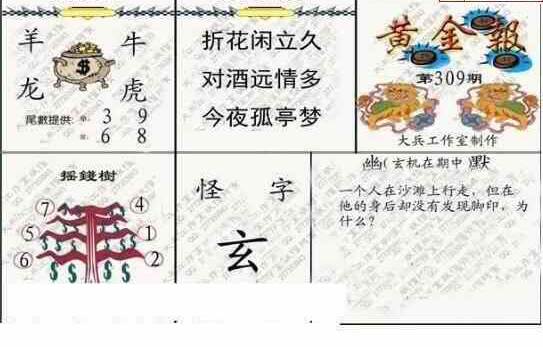 羊 牛
龙 虎
尾數提供: 單: 3 9
雙: 6 8
折花闲立久
对酒远情多
今夜孤亭梦
黄金報
第309期
大兵工作室制作
摇錢樹
⑦ ④
⑤ ①
⑥ ②
怪 字
玄
幽(玄机在期中 默
一个人在沙滩上行走，但在
他的身后却没有发现脚印，为
什么?